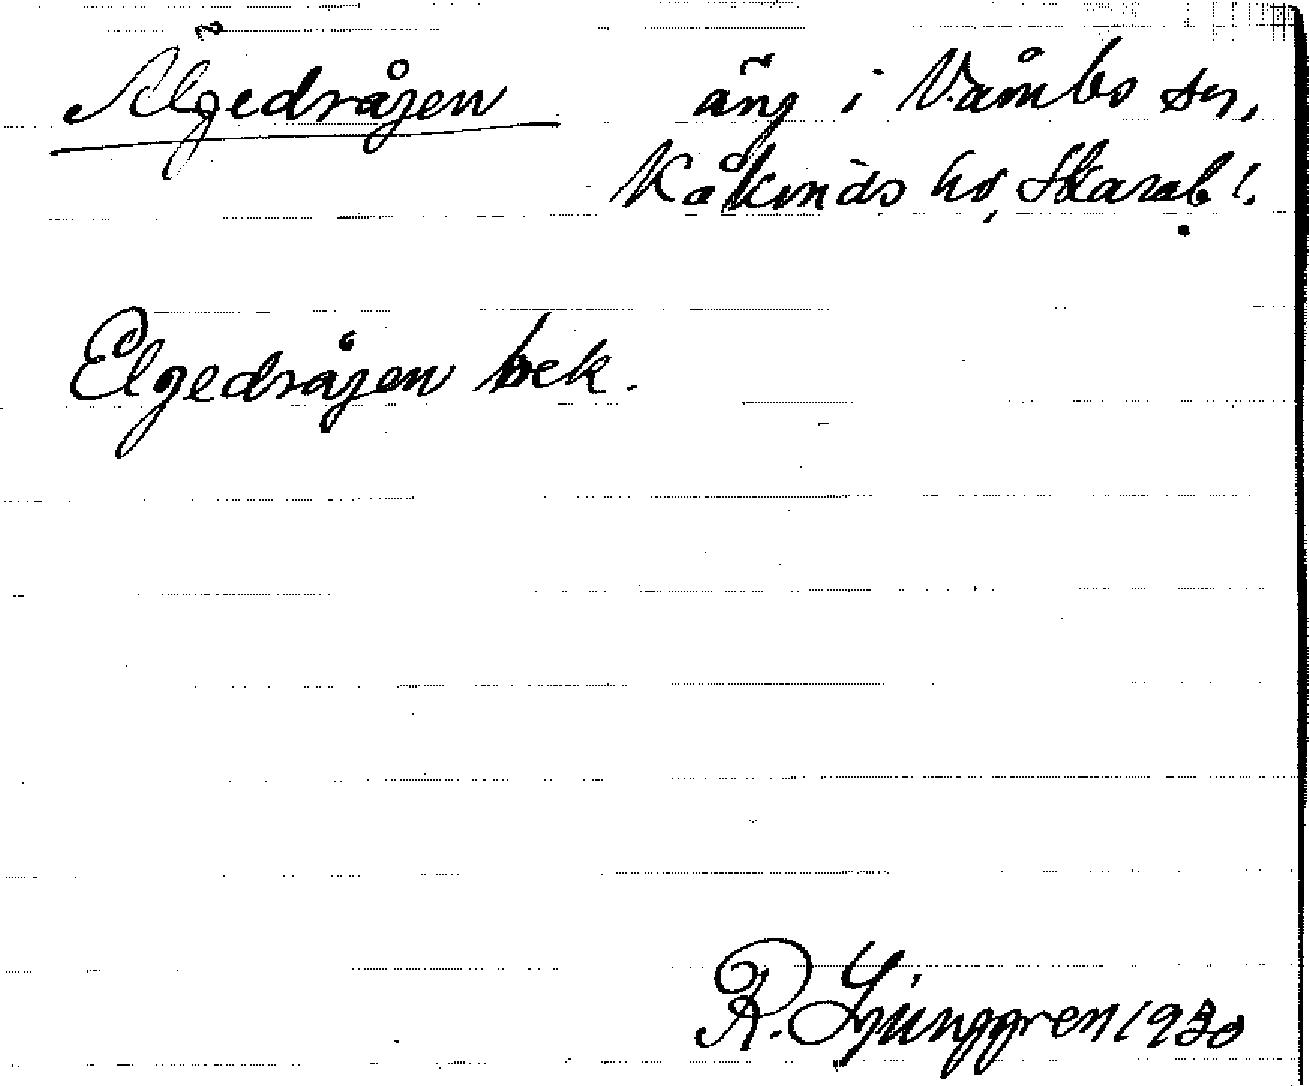 Älgedråjen äng i Våmbs sn,
Kåkinds hd, Skarab. l.
Elgedråjen bek.
R. Ljunggren 1930